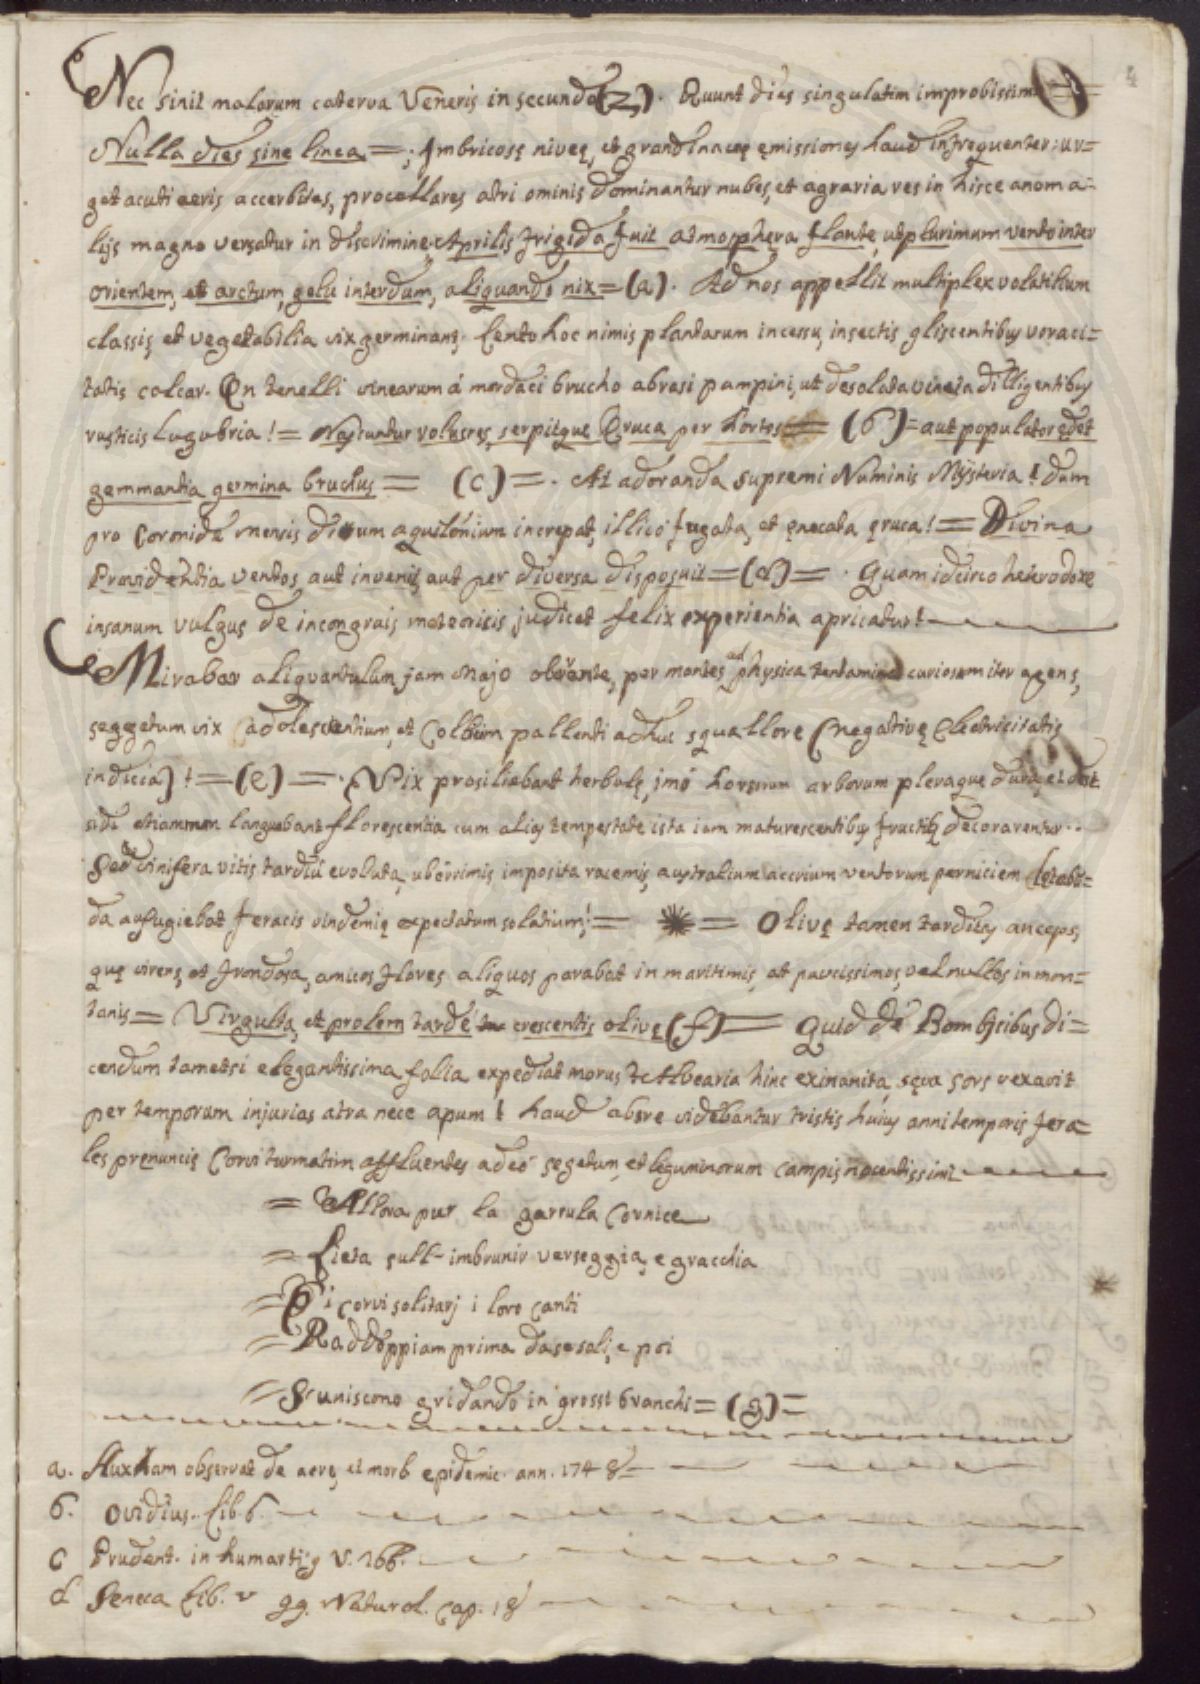 4
Nec sinit malorum caterva Veneris in secunda (z). Ruunt dies singulatim improbissimi =
Nulla dies sine linea =; Imbricosę niveę, et grandinaceę ęmissiones haud infrequenter: ur=
get acuti aeris accerbitas, procellares atri ominis dominantur nubes, et agraria res in hisce anoma=
lijs magno versatur in discrimine; Aprilis frigida fuit atmosphęra flante, ut plurimum vento inter
orientem, et arctum, gelu interdum, aliquando nix = (a). Ad nos appellit multiplex volatilium
classis, et vegetabilia vix germinant. Lento hoc nimis plantarum incessu, insectis gliscentibus voraci=
tatis calcar. En tenelli vinearum á mordaci brucho abrasi pampini, ut desolata vineta diligentibus
rusticis lugubria! = Nascuntur volucres, serpitque Eruca per hortos = (b) = aut populator ędet
gemmantia germina bruchus = (c) = . At adoranda supremi Numinis Mÿsteria! dum
pro Coronide mensis dirum aquilonium increpat, illicó fugata, et ęnecata ęruca! = Divina
Providentia ventos, aut invenit, aut per diversa disposuit = (d) = . Quam idcirco heterodoxe
insanum vulgus de incongruis meteoricis judicet felix experientia apricatur!
Mirabar aliquantulum jam Majo obeunte, per montes ad physica tentamina curiosum iter agens,
seggetum vix adolescentium, et Collium pallenti adhuc squallore (negativę Electricitatis
indicia)! = (e) = . Vix prosiliebant herbulę, imó hortorum arborum pleraque dura, et
etiamnum languebant florescentia cum alias tempestate ista iam maturescentibus fructibus decorarentur..
Sed vinifera vitis tardiú evoluta, ubérrimis imposita racemis, australium accrium ventorum perniciem lętabun=
da aufugiebat feracis vindemię expectatum solatium! = ✷ = Olivę tamen tarditas anceps,
quę virens, et frondosa, amicos flores aliquos parabat in maritimis, at paucissimos, vel nullos in mon=
tanis = Virgulta, et prolem tardé crescentis olivę (f) = Quid de Bombicibus di=
cendum tametsi elegantissima folia expediat morus? Alvearia hinc exinanita, sęva sors vexavit
per temporum injurias atra nece apum! haud abs re videbantur tristis huius anni temporis fera=
les prenuncis Corvi turmatim affluentes adeó segetum, et leguminorum campis nocentissimi
= Allora pur la garrula Cornice
= Lieta sull' imbrunir verseggia, e gracchia
= E i corvi solitarj i loro canti
= Raddóppiam prima da se soli, e poi
= S' uniscono gridando in grossi branchi = (g) =
a. Huxham observat de aere, et morb epidemic. ann. 1748
b. Ovidius. Lib. 6.
c Prudent. in hamartig V.
d Seneca Lib. v qq. Natural. Cap. 18